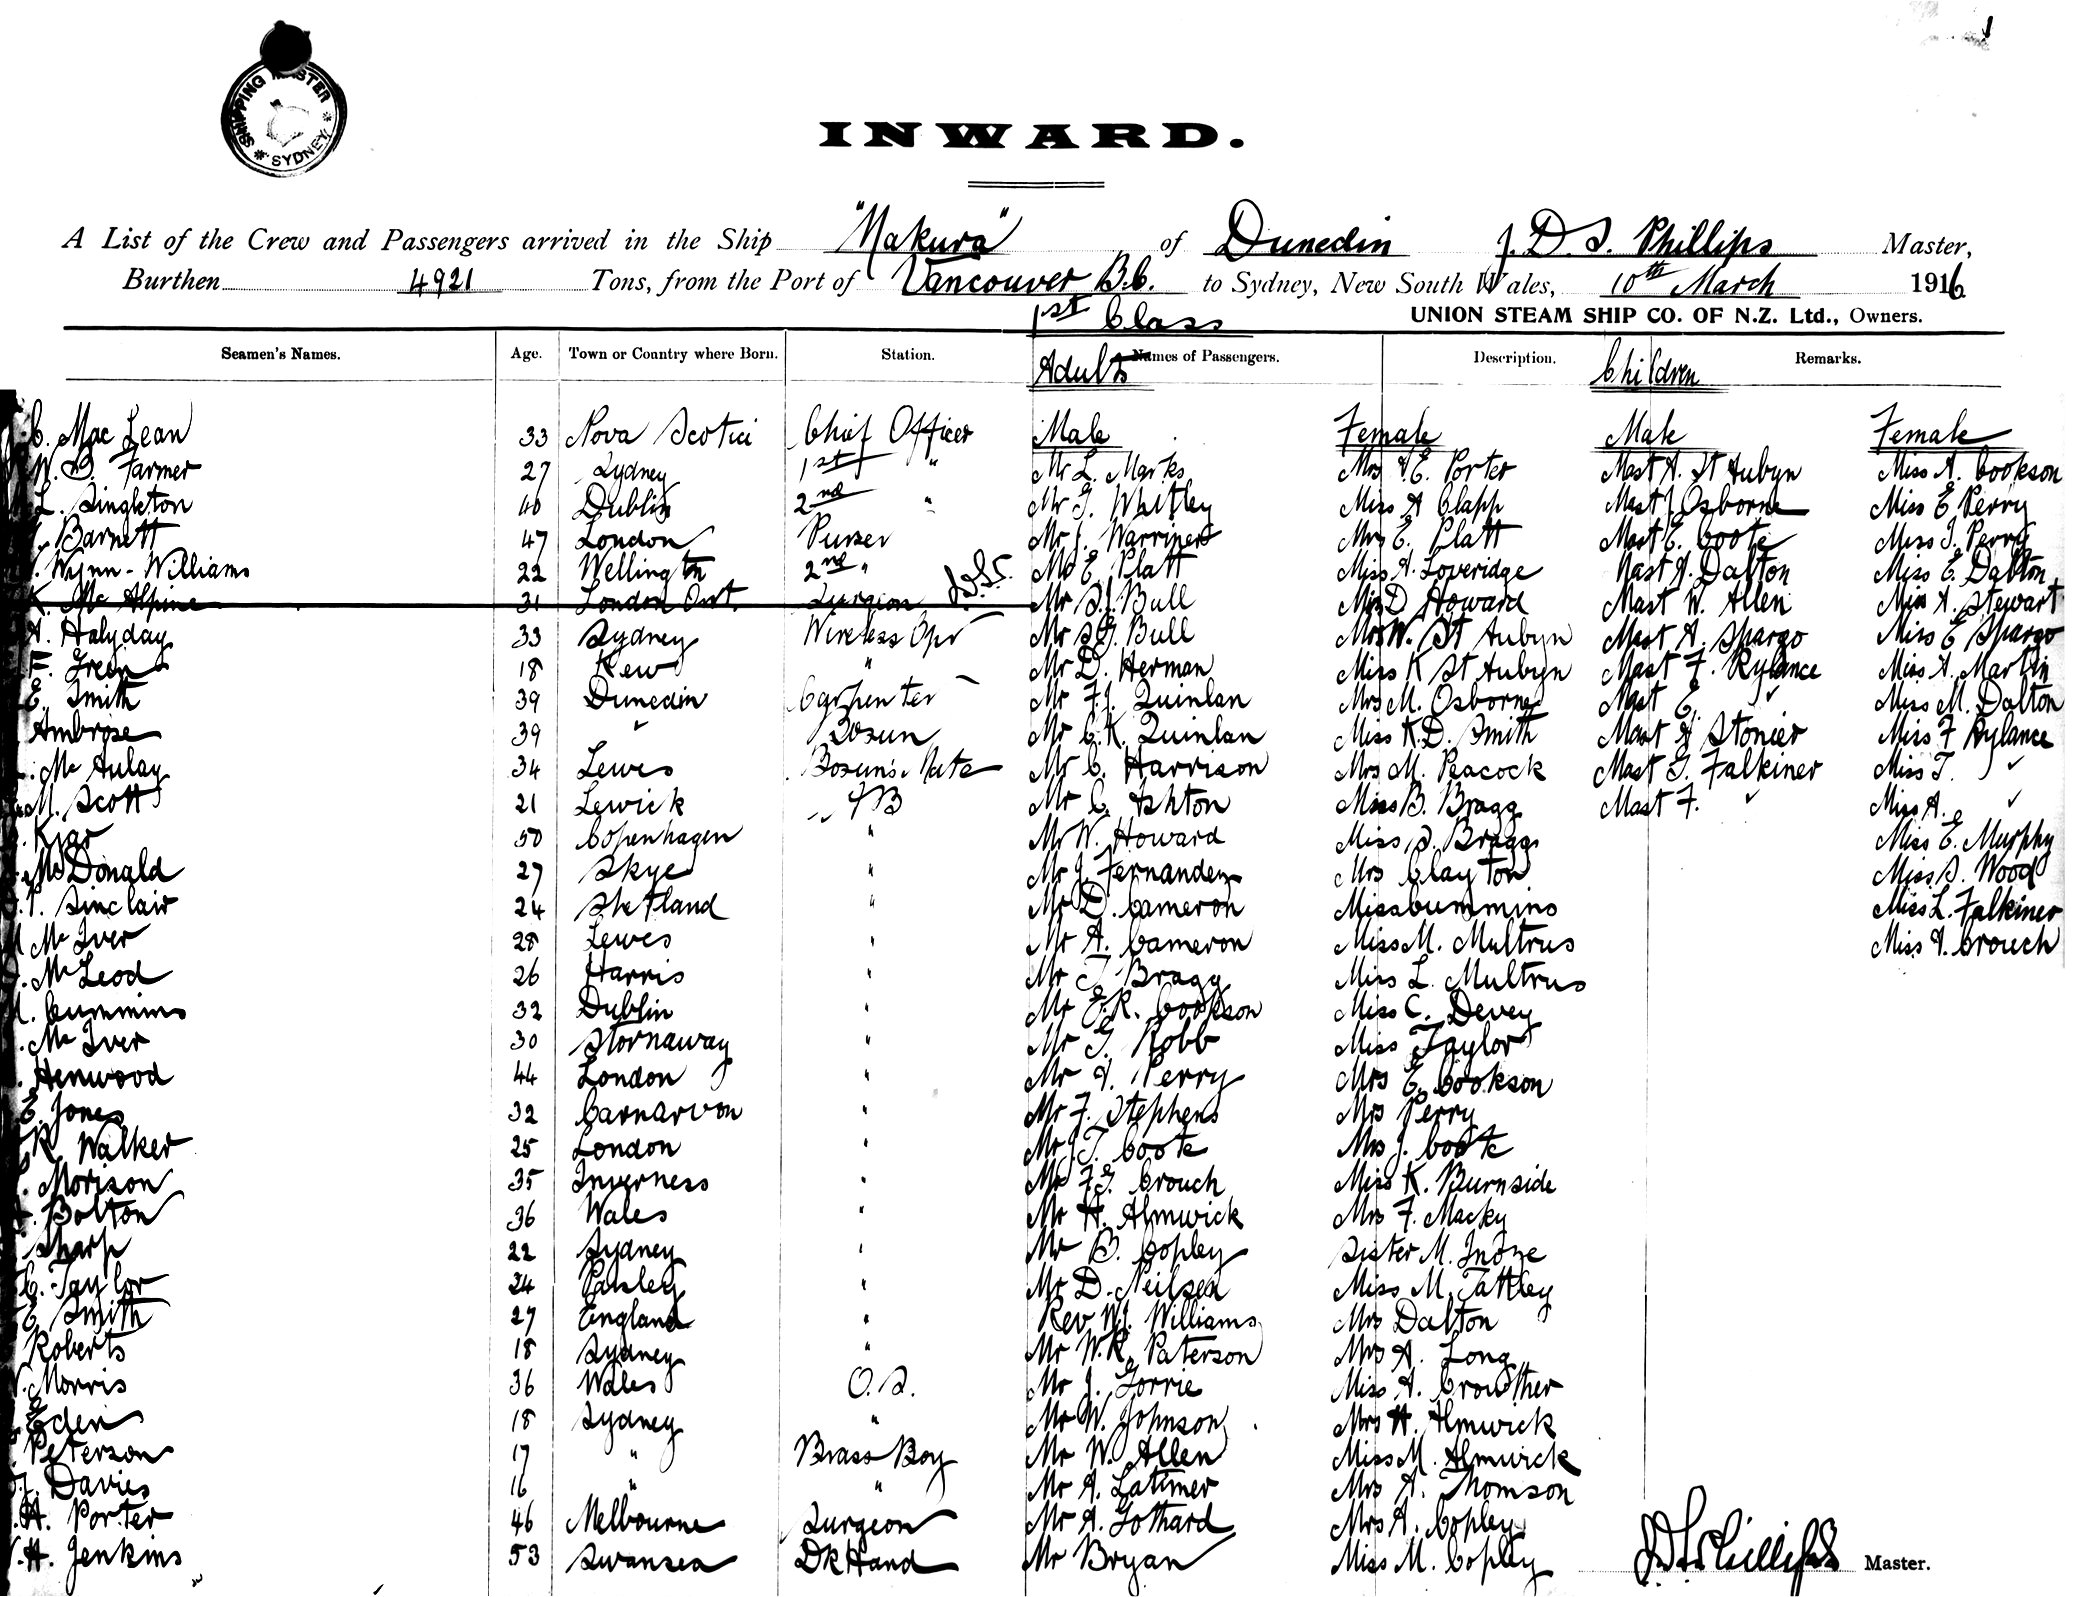 SHIPPING MASTER * SYDNEY *
INWARD.
A List of the Crew and Passengers arrived in the Ship "Makura" of Dunedin J. D. S. Phillips Master,
Burthen 4921 Tons, from the Port of Vancouver B.C. to Sydney, New South Wales, 10th March 1916
1st Class UNION STEAM SHIP CO. OF N.Z. Ltd., Owners.
Seamen's Names. Age. Town or Country where Born. Station. Names of Passengers. Description. Remarks.
Adults Children
C. Mac Lean 33 Nova Scotia Chief Officer Male Female Male Female
W. Farmer 27 Sydney 1st " Mr L. Marks Mrs V.E. Porter Mast A. St Aubyn Miss A. Cookson
L. Singleton 40 Dublin 2nd " Mr G. Whitley Miss A Clapp Mast J. Osborne Miss E. Perry
Barnett 47 London Purser Mr J. Warriner Mrs E. Platt Mast E. Coote Miss J. Perry
Wynn-Williams 22 Wellington 2nd " Mr E. Platt Miss A. Loveridge Mast Dalton Miss E. Dalton
K. Mc Alpine 31 London Ont. Surgeon Mr S.J. Bull D Howard Mast W. Allen Miss A. Stewart
A. Halyday 33 Sydney Wireless Opr Mr S.G. Bull Mrs W. St Aubyn Mast A. Spargo Miss E Spargo
F. Green 18 Kew " Mr D. Herman Miss K St Aubyn Mast F. Rylance Miss A. Martin
E. Smith 39 Dunedin Carpenter Mr F.J. Quinlan Mrs M. Osborne Mast E. " Miss M. Dalton
Ambrose 39 " Bosun Mr C.K. Quinlan Miss K.D. Smith Mast A Stonier Miss F Rylance
Mc Aulay 34 Lewes Bosun's Mate Mr C. Harrison Mrs M. Peacock Mast G. Falkiner Miss T. "
M. Scott 21 Lewick AB Mr C. Ashton Miss B. Bragg Mast F. " Miss A. "
Kjar 50 Copenhagen " Mr W. Howard Miss D. Bragg Miss E. Murphy
McDonald 27 Skye " Mr J. Fernandez Mrs Clayton Miss D. Wood
Sinclair 24 Shetland " Mr D. Cameron Miss Cummins Miss L. Falkiner
Mc Iver 28 Lewes " Mr A. Cameron Miss M. Multrus Miss V. Crouch
McLeod 26 Harris " Mr T Bragg Miss L. Multrus
Cummins 32 Dublin " Mr E.R. Cookson Miss C. Devey
Mc Iver 30 Stornaway " Mr G. Robb Miss Taylor
Henwood 44 London " Mr V. Perry Mrs E. Cookson
E. Jones 32 Carnarvon " Mr F. Stephens Mrs Perry
R. Walker 25 London " Mr J.T. Coote Mrs J. Coote
Morison 35 Inverness " Mr F.G. Crouch Miss K. Burnside
Bolton 36 Wales " Mr H. Almwick Mrs F. Macky
Sharp 22 Sydney " Mr B. Copley Sister M. Inoze
C. Taylor 24 Paisley " Mr D. Neilsen Miss M. Tattley
E. Smith 27 England " Rev W.J. Williams Mrs Dalton
Roberts 18 Sydney " Mr W.R. Paterson Mrs A. Long
Morris 36 Wales O.S. Mr J. Gorrie Miss A. Crowther
Eden 18 Sydney " Mr W. Johnson Mrs H. Almwick
Peterson 17 " Brass Boy Mr W. Allen Miss M. Almwick
Davies 16 " " Mr A. Latimer Mrs A. Thomson
A. Porter 46 Melbourne Surgeon Mr A. Gothard Mrs A. Copley
H. Jenkins 53 Swansea Dk Hand Mr Bryan Miss M. Copley J D S Phillips Master.